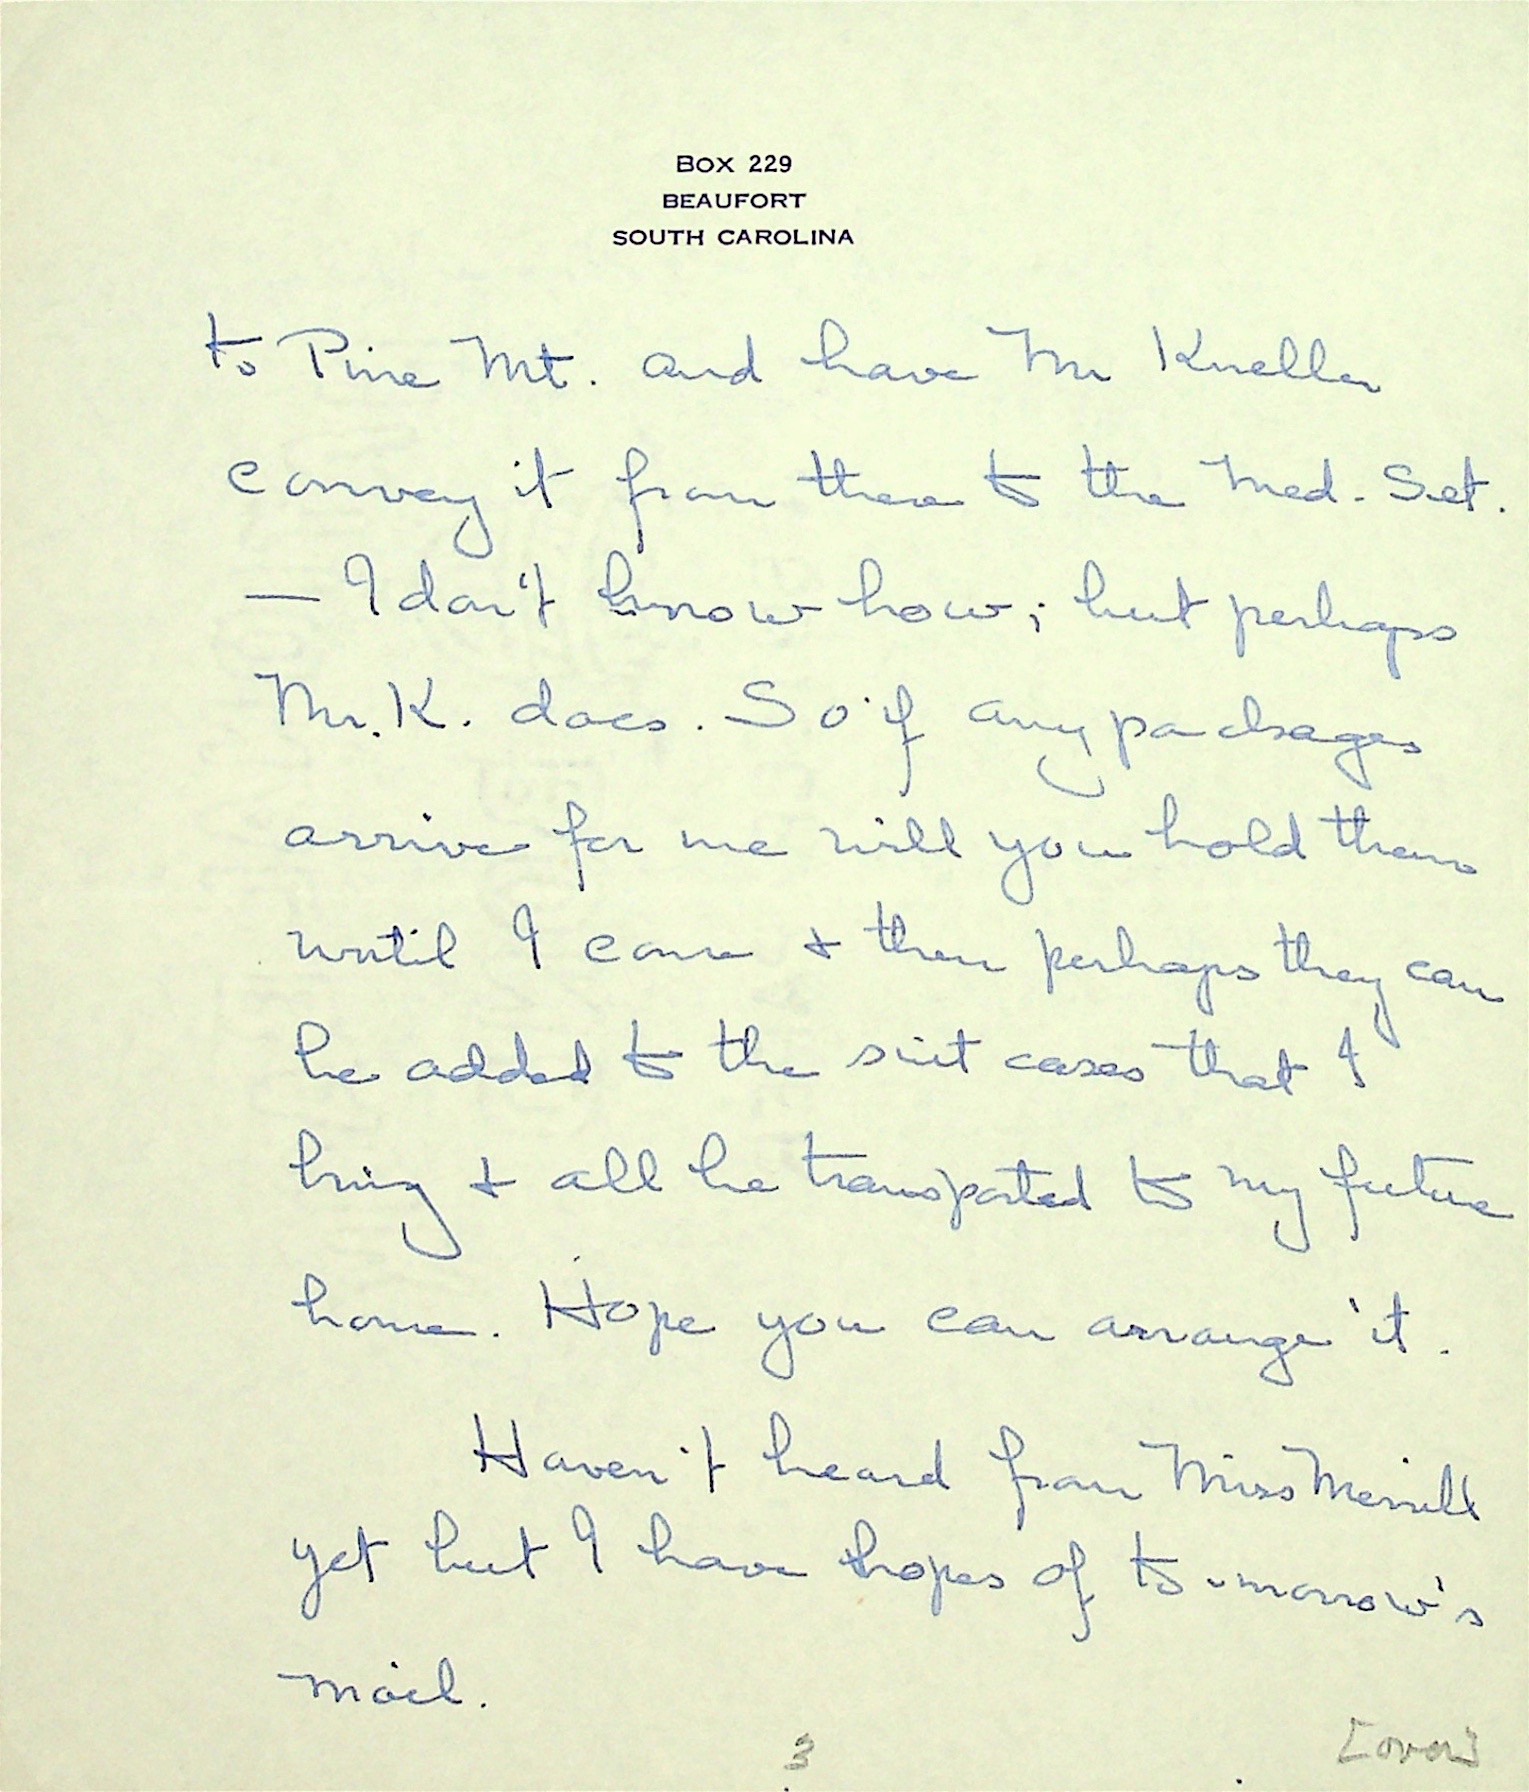 BOX 229
BEAUFORT
SOUTH CAROLINA
to Pine Mt. and have Mr Kneller
convey it from there to the Med. Set.
— I don't know how; but perhaps
Mr. K. does. So if any packages
arrive for me will you hold them
until I come & then perhaps they can
be added to the suit cases that I
bring & all be transported to my future
home. Hope you can arrange it.
Haven't heard from Miss Merrill
yet but I have hopes of to-morrow's
mail.
3
[over]